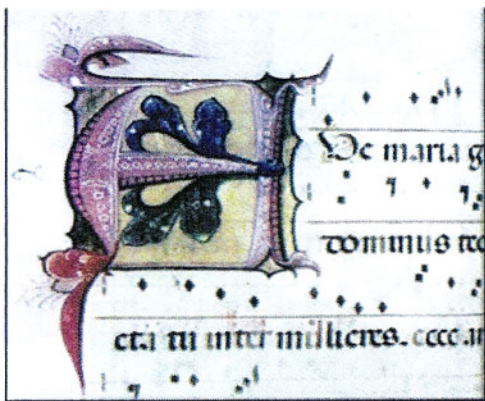 A
Ve maria g
dominus tec
cta tu inter mulieres. cccc.